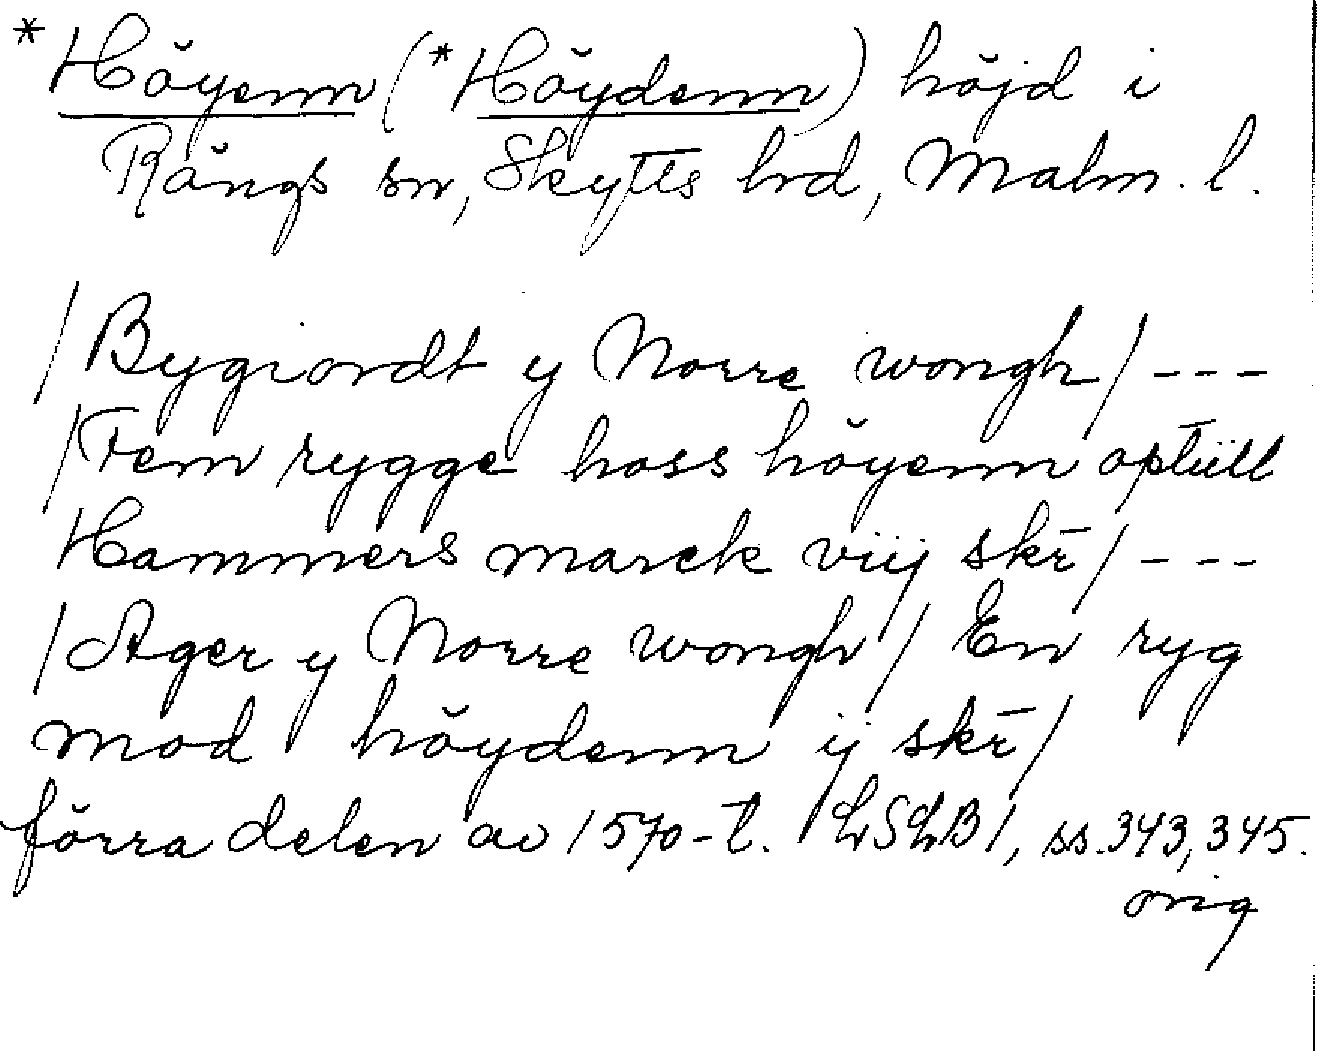 *Höyenn (*Höydenn) höjd i
Rängs sn, Skytts hrd, Malm. l.
/Bygiordt y Norre wongh/ ---
/Fem rygge hoss höyenn optiill
Hammers marck viij skr̄/ ---
/Ager y Norre wongh/ En ryg
mod höydenn ij skr̄/
förra delen av 1570-t. LSLB 1, ss. 343, 345.
orig